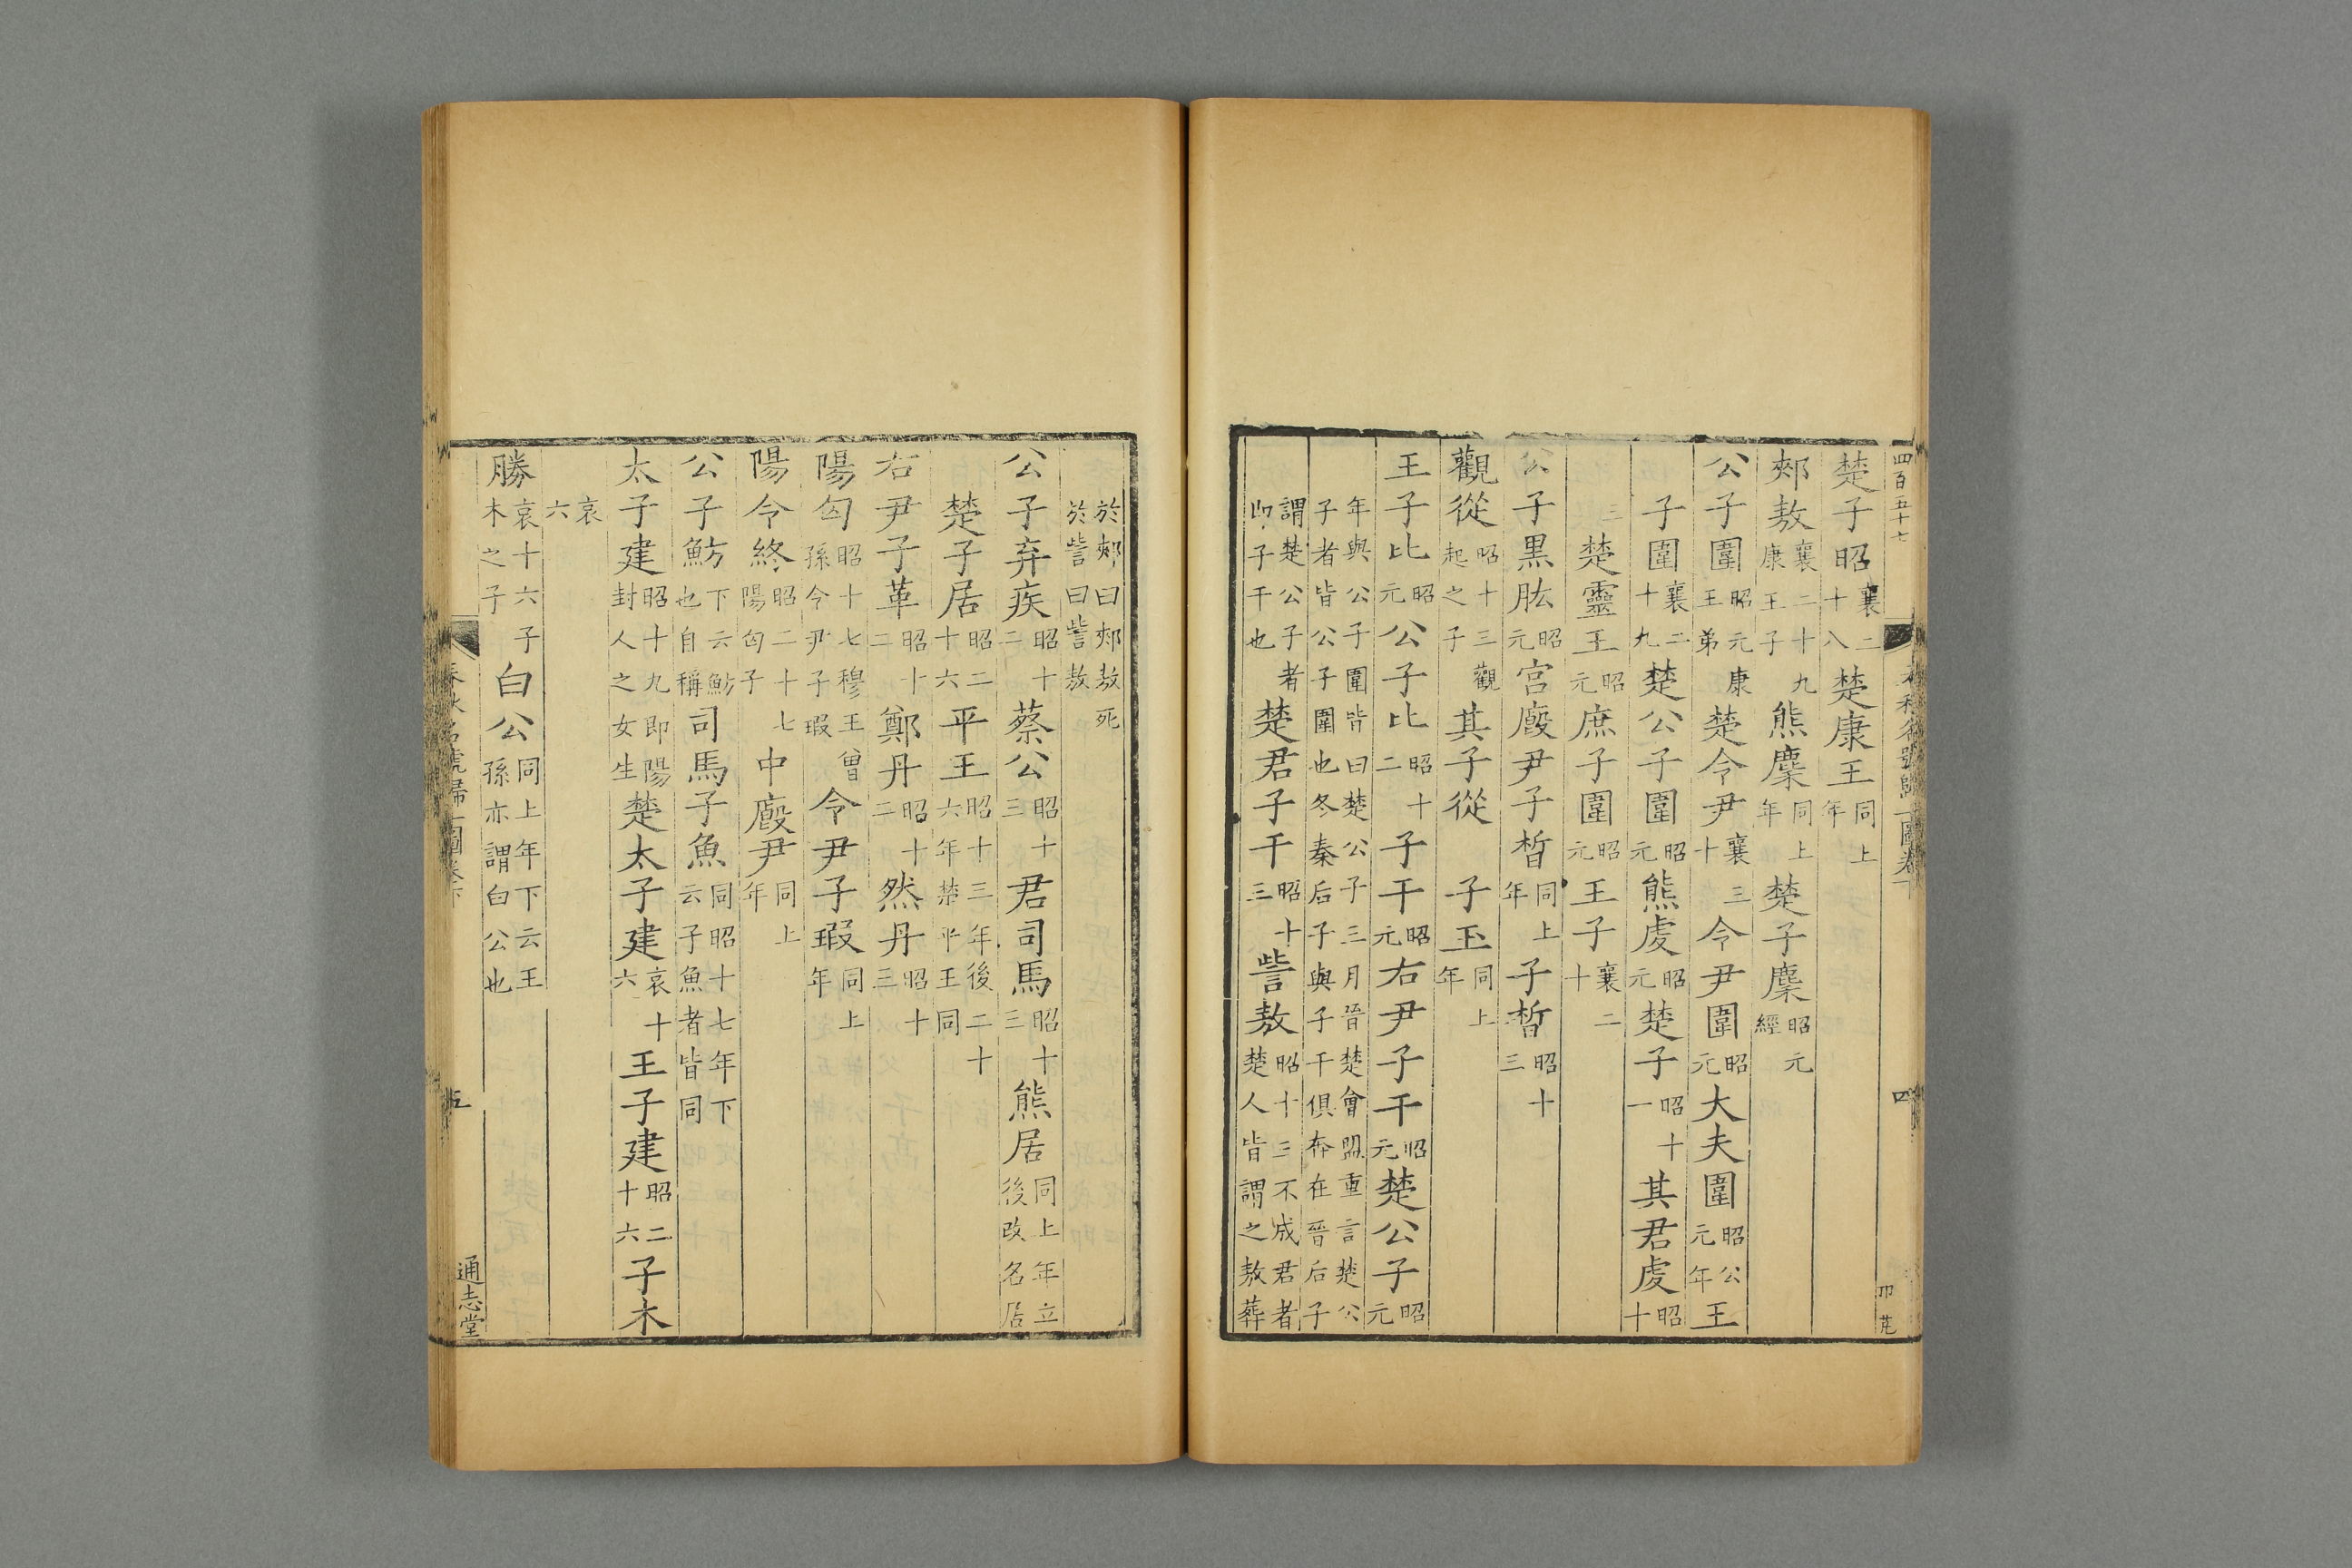 四百五十七
楚子昭襄二十八楚康王同上年
郟敖襄二十九康王子熊麇同上年楚子麇昭元經
公子圍昭元康王弟楚令尹襄三十令尹圍昭元大夫圍昭元公年王
子圍襄二十九楚公子圍昭元熊虔昭元楚子昭十一其君虔昭十
三楚靈王昭元庶子圍昭元王子襄二十
公子黑肱昭元宫廄尹子晳同上年子晳昭十三
觀從昭十三觀起之子其子從子玉同上年
王子比昭元公子比昭十二子干昭元右尹子干昭元楚公子昭元
年與公子圍皆曰楚公子三月晉楚會盟重言楚公
子者皆公子圍也冬秦后子與子干俱奔在晉后子
謂楚公子者
即子干也楚君子干昭十三訾敖昭十三不成君者楚人皆謂之敖葬
四
通志堂
於郟曰郟敖死
於訾曰訾敖
公子弃疾昭十二蔡公昭十三君司馬昭十三熊居同上年立後改名居
楚子居昭二十六平王昭十三年後二十六年楚平王同
右尹子革昭十二鄭丹昭十二然丹昭十三
陽匄昭十七穆王曾孫令尹子瑕令尹子瑕同上年
陽令終昭二十七陽匄子中廄尹同上年
公子魴下云魴也自稱司馬子魚同昭十七年下云子魚者皆同
太子建昭十九即陽封人之女生楚太子建哀十六王子建昭二十六子木
哀六
勝哀十六子木之子白公同上年下云王孫亦謂白公也
春秋名號歸一圖卷下
五
通志堂